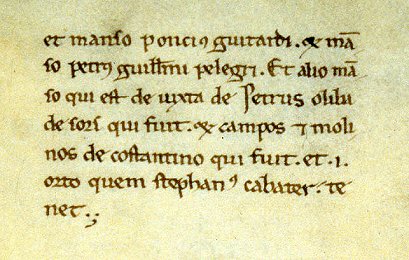 et manso ponciꝰ guitardi. & mā
so petrꝰ guiłłmi pelegri. Et alio mā
so qui est de iuxta de Petrus oliba
de sors qui fuit. & campos ⁊ moli
nos de costantino qui fuit. et .i.
orto quem stephanꝰ cabater. te
net.;